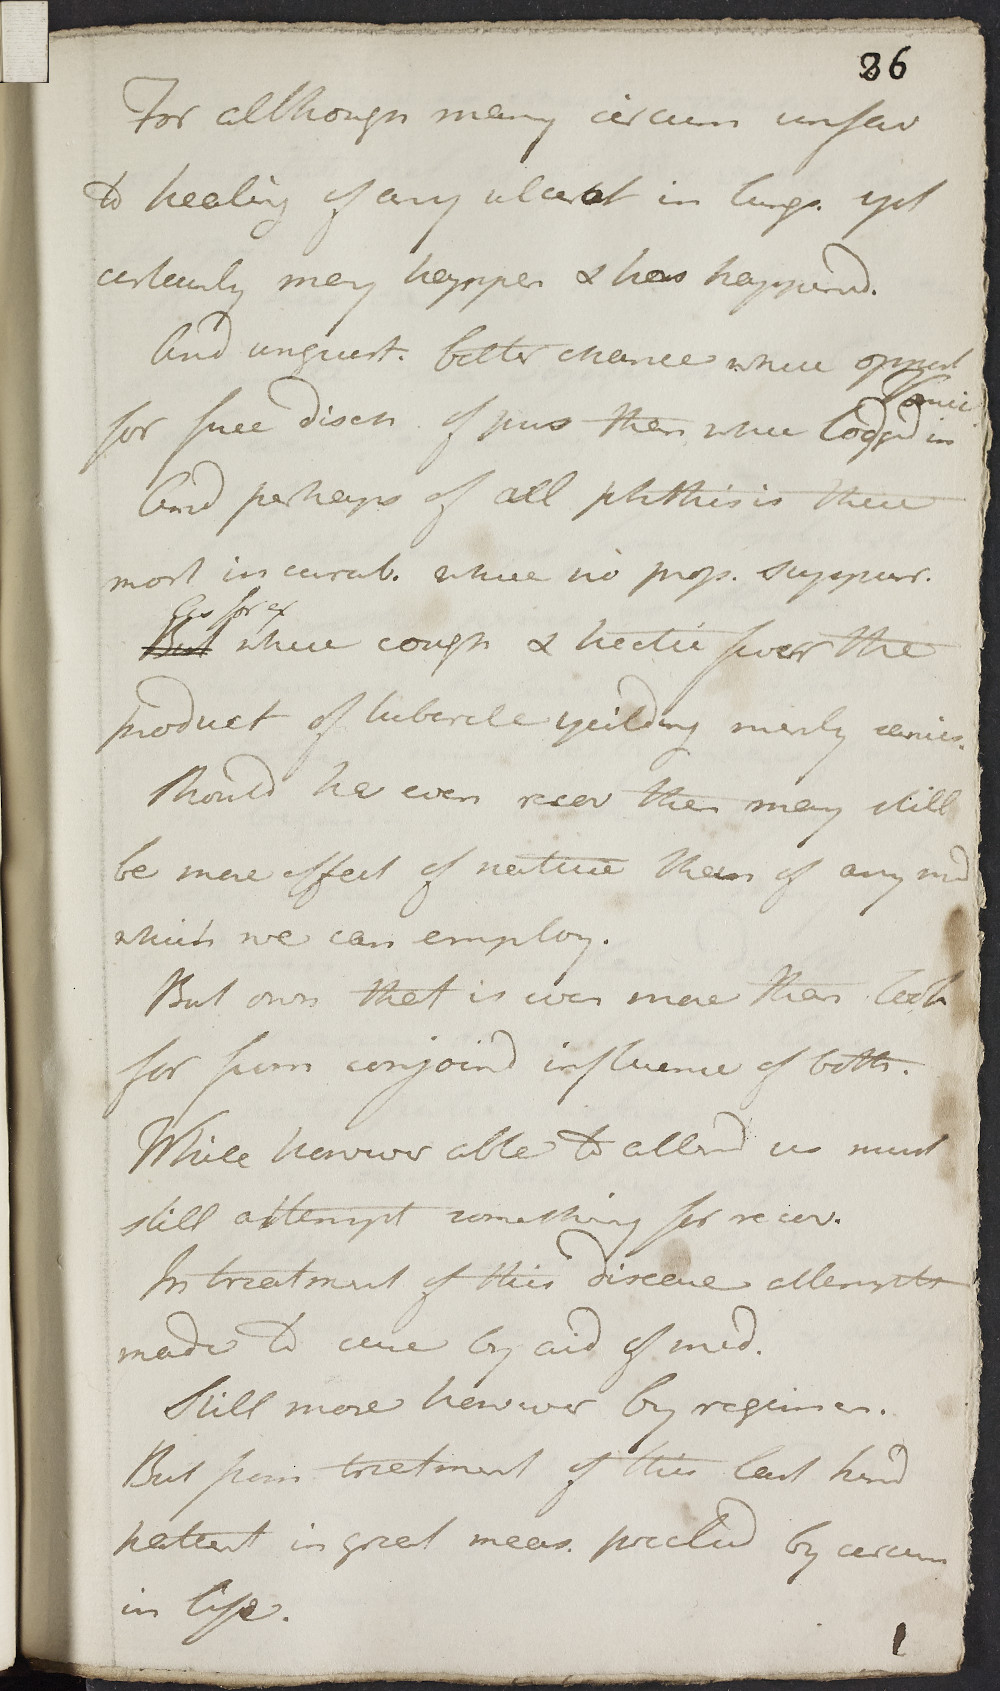 36
For although many circum unfav
to healing of any ulcerat in lungs. yet
certainly may happen & has happened.
And unquest. better chance where opport
for free disch of pus than where lodged in
Vomic
And perhaps of all phthisis these
most incurab. where no prop. suppur.
As for ex
But where cough & hectic fever the
product of tubercle yeilding merly sanies.
Should he even recov then may still
be more effect of nature than of any med
which we can employ.
But own that is even more than look
for from conjoind influence of both.
While however able to attend us must
still attempt something for recov.
In treatment of this disease attempts
made to cure by aid of med.
Still more however by regimen.
But from treatment of this last kind
patient in great meas. preclud by circum
in life.